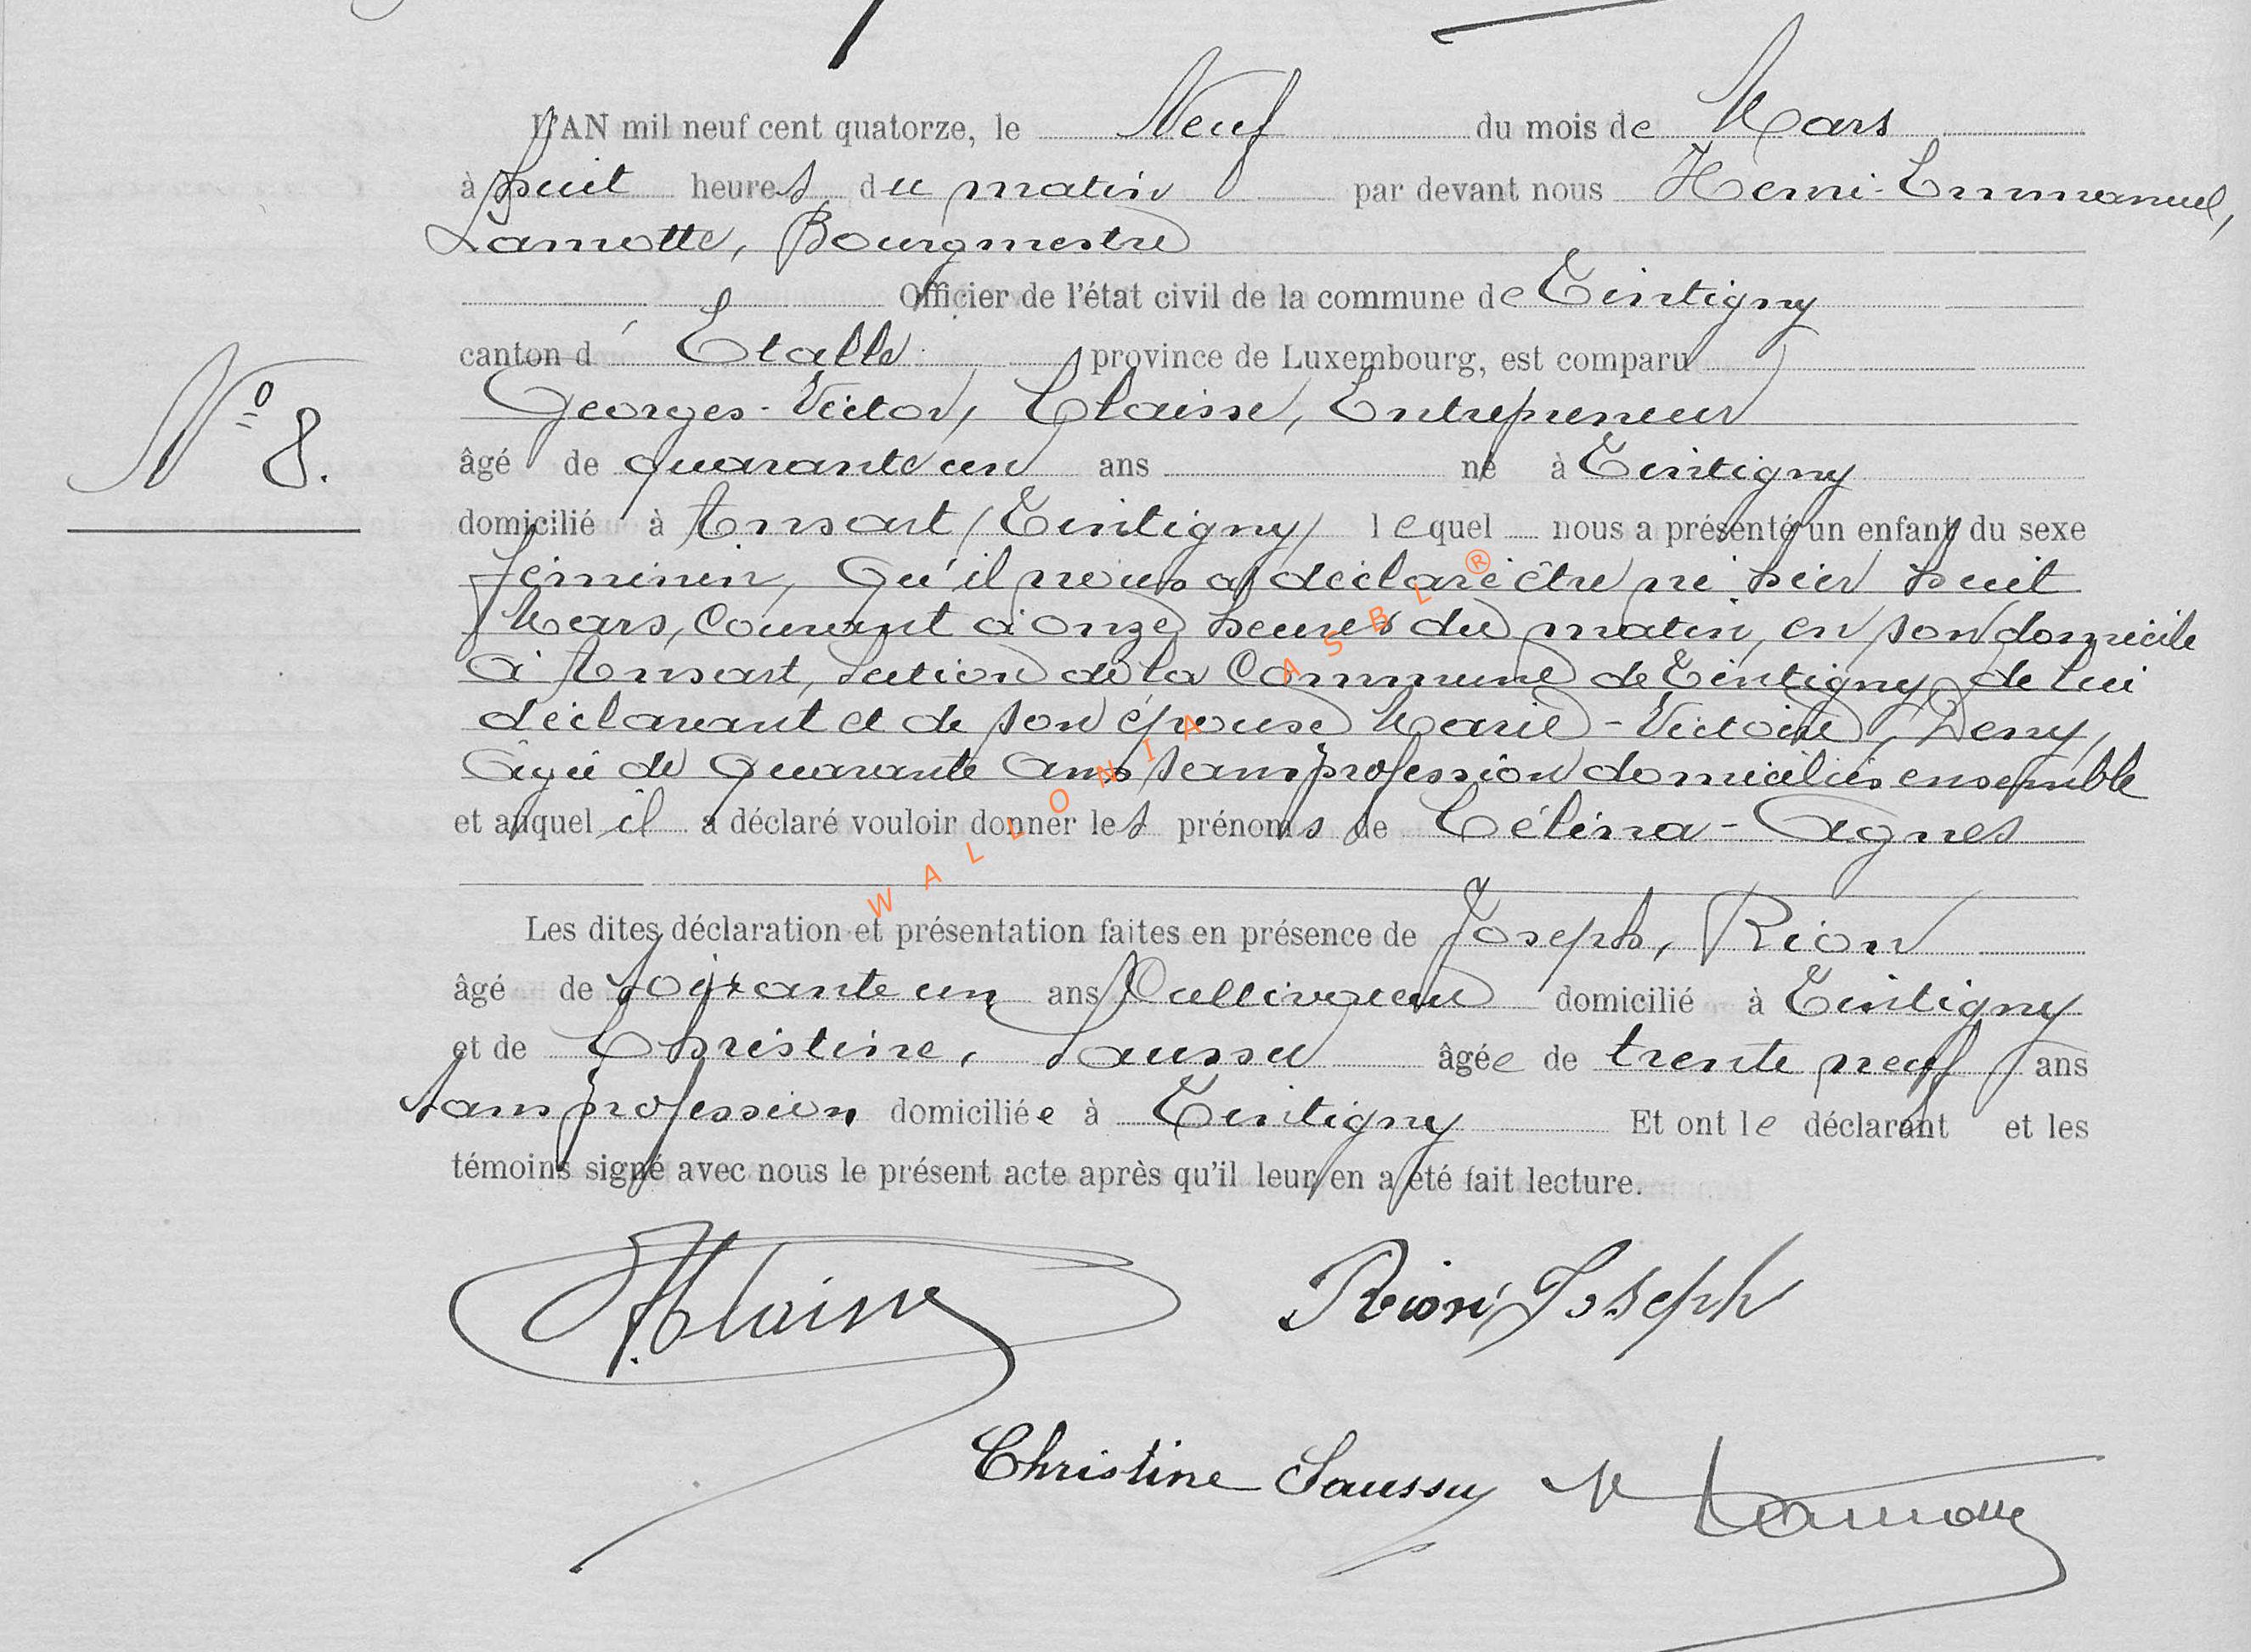 L'AN mil neuf cent quatorze, le Neuf du mois de Mars
à huit heures du matin par devant nous Henri-Emmanuel,
Lamotte, Bourgmestre
Officier de l'état civil de la commune de Tintigny
canton d Etalle province de Luxembourg, est comparu
Georges-Victor, Claisse, Entrepreneur
N° 8.
âgé de quarante un ans né à Tintigny
domicilié à Ansart (Tintigny) lequel nous a présenté un enfant du sexe
féminin, qu'il nous a déclaré être né hier huit
Mars, courant à onze heures du matin, en son domicile
à Ansart, section de la Commune de Tintigny de lui
déclarant et de son épouse Marie-Victoire, Deny,
âgée de quarante ans sans profession domiciliés ensemble
et auquel il a déclaré vouloir donner les prénoms de Célina-Agnes
Les dites déclaration et présentation faites en présence de Joseph, Rion
âgé de soixante un ans Cultivateur domicilié à Tintigny
et de Christine, Saussu âgée de trente neuf ans
sans profession domiciliée à Tintigny Et ont le déclarant et les
témoins signé avec nous le présent acte après qu'il leur en a été fait lecture.
Claisse Rion Joseph
Christine Saussu Lamotte
WALLONIA ASBL ®